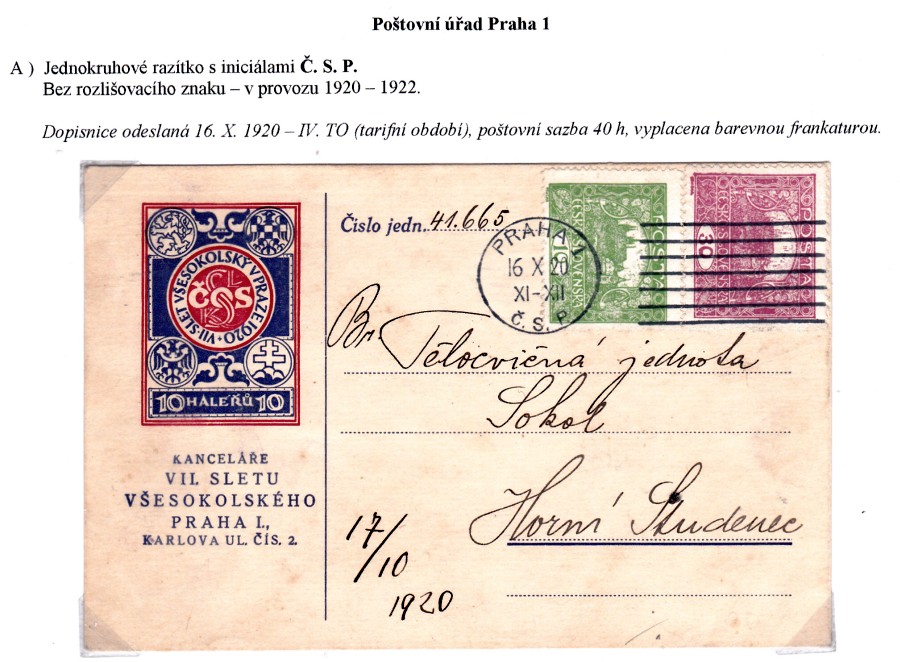 Poštovní úřad Praha 1
A ) Jednokruhové razítko s iniciálami Č. S. P.
Bez rozlišovacího znaku – v provozu 1920 – 1922.
Dopisnice odeslaná 16. X. 1920 – IV. TO (tarifní období), poštovní sazba 40 h, vyplacena barevnou frankaturou.
VII. SLET VŠESOKOLSKÝ V PRAZE 1920
ČOS
10 HALÉŘŮ 10
KANCELÁŘE
VII. SLETU
VŠESOKOLSKÉHO
PRAHA I.,
KARLOVA UL. ČÍS. 2.
Číslo jedn. 41.665
PRAHA 1
16 X 20
XI-XII
Č. S. P.
30
Br. Tělocvičná jednota
Sokol
Horní Studenec
17/10
1920